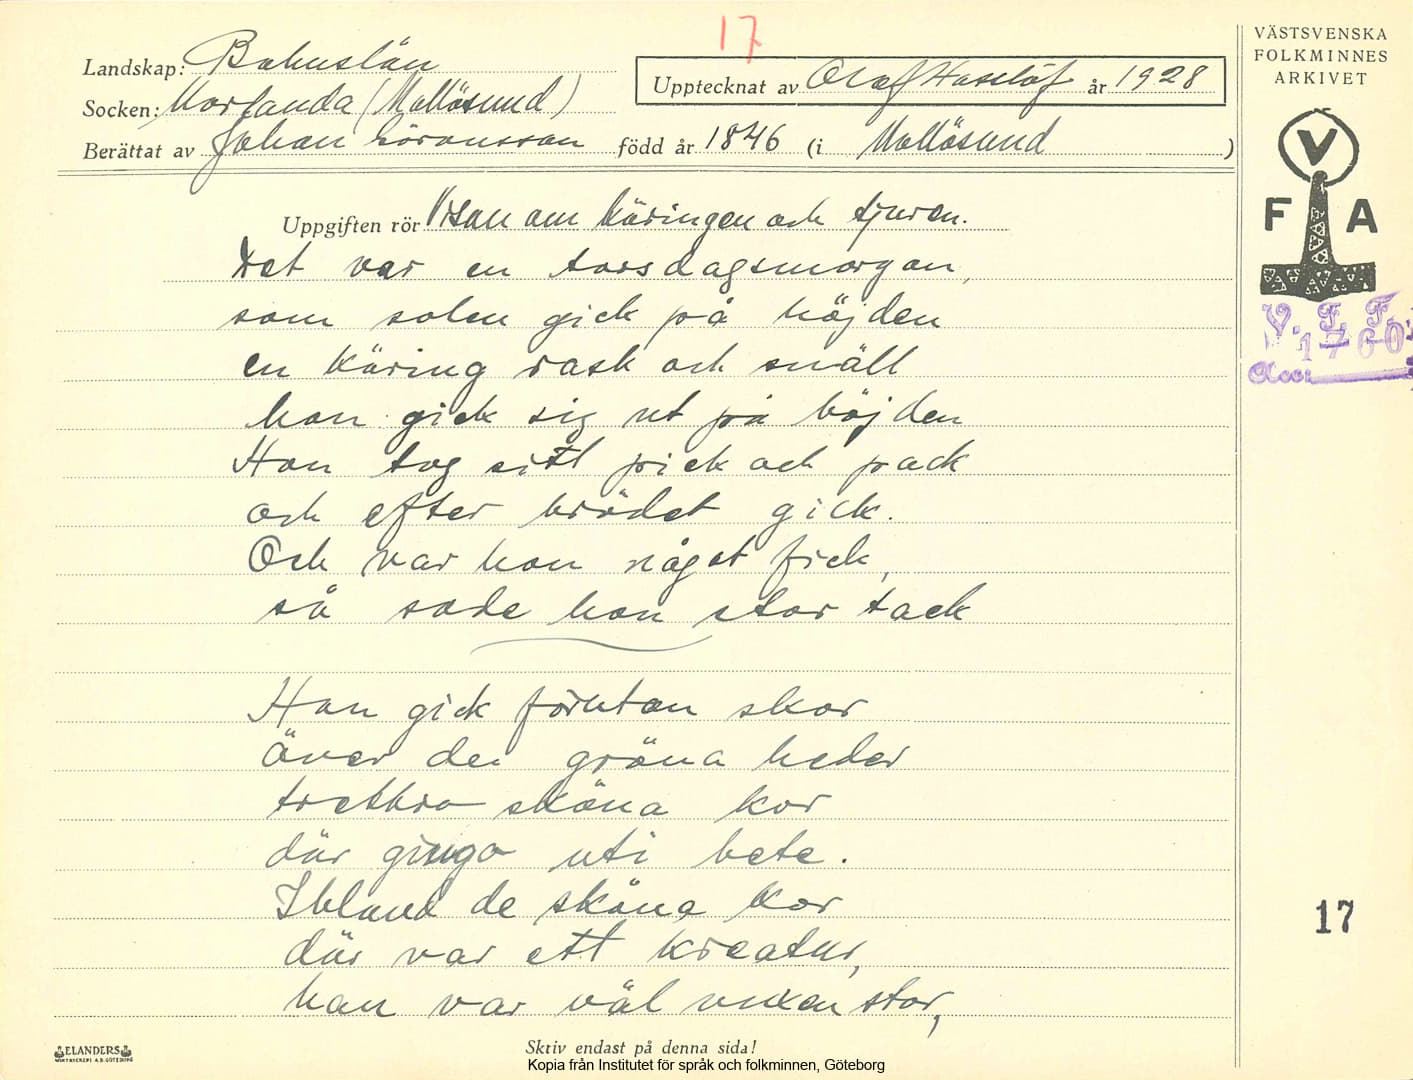 17
Landskap: Bohuslän
Socken: Morlanda (Mollösund)
Upptecknat av Olof Hasslöf år 1928
Berättat av Johan Göransson född år 1846 (i Mollösund)
Uppgiften rör Visan om käringen och tjuren.
Det var en torsdagsmorgon,
som solen gick på höjden
en käring rask och snäll
hon gick sig ut på höjden
Hon tog sitt pick och pack
och efter brödet gick.
Och var hon något fick,
så sade hon stor tack
Hon gick förutan skor
över de gröna heder
trettio sköna kor
där gingo uti bete.
Ibland de sköna kor
där var ett kreatur,
han var väl vuxen stor,
ELANDERS
Skriv endast på denna sida!
Kopia från Institutet för språk och folkminnen, Göteborg
VÄSTSVENSKA
FOLKMINNES
ARKIVET
V
F A
V. F. F.
1760
Acc:
17